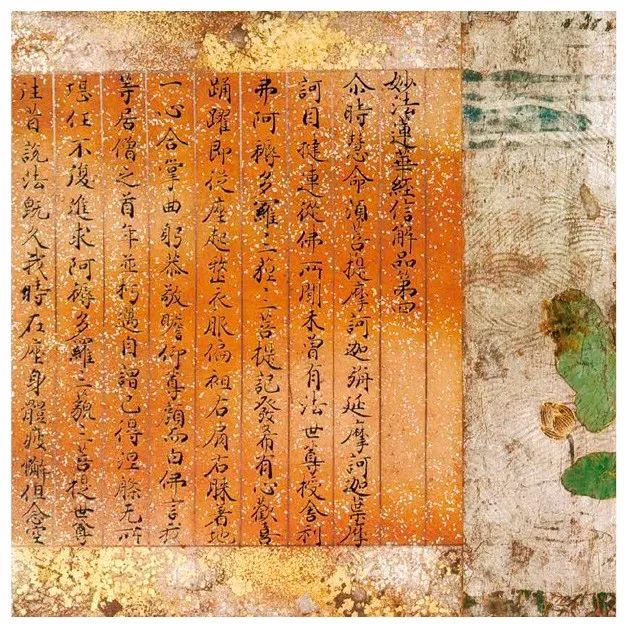 妙法蓮華經信解品第四
尒時慧命須菩提摩訶迦旃延摩訶迦葉摩
訶目揵連從佛所聞未曾有法世尊授舍利
弗阿耨多羅三藐三菩提記發希有心歡喜
踊躍即從座起整衣服偏袒右肩右膝著地
一心合掌曲躬恭敬瞻仰尊顏而白佛言我
等居僧之首年並朽邁自謂已得涅槃无所
堪任不復進求阿耨多羅三藐三菩提世尊
往昔說法既久我時在座身體疲懈但念空